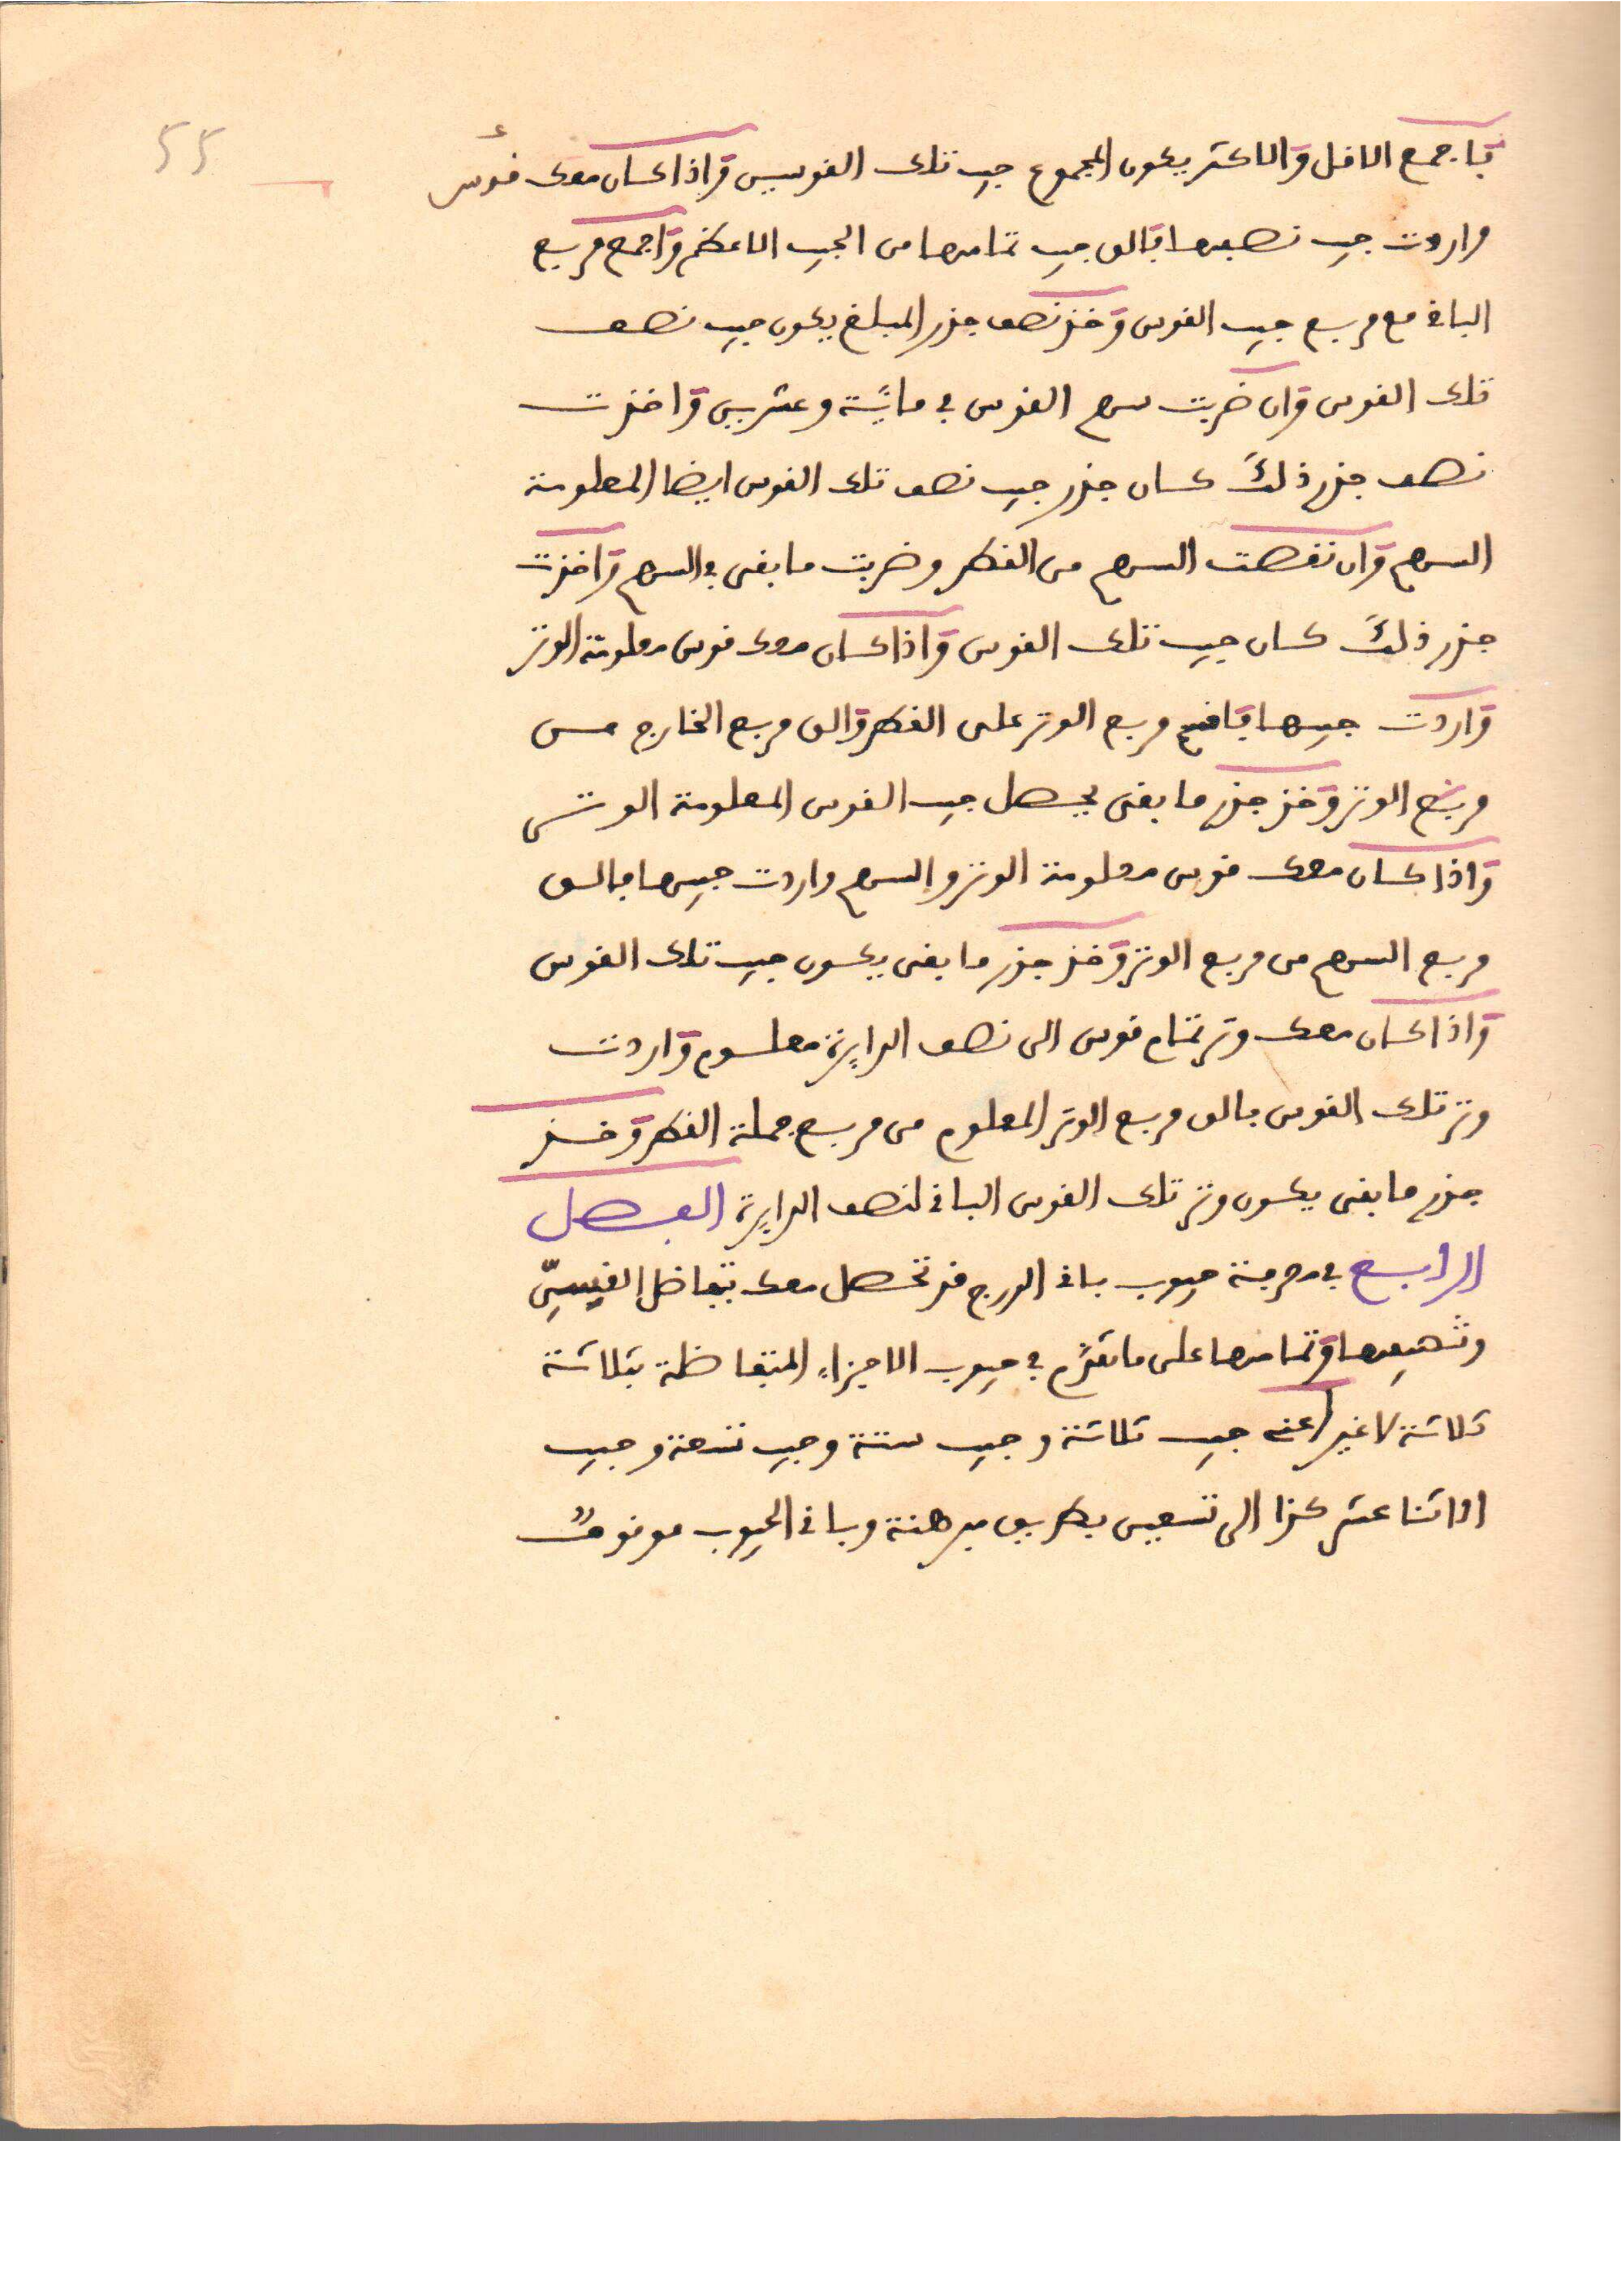 55
فاجمع الاقل والاكثر يكون المجموع جيب تلك القوسين واذا كان معك قوس
واردت جيب نصفها فالق جيب تمامها من الجيب الاعظم واجمع مربع
الباقي مع مربع جيب القوس وخذ نصف جذر المبلغ يكون جيب نصف
تلك القوس وان ضربت سهم القوس في ماية وعشرين واخذت
نصف جذر ذلك كان جذر جيب نصف تلك القوس ايضا المعلومة
السهم وان نقصت السهم من القطر وضربت ما بقى في السهم واخذت
جذر ذلك كان جيب تلك القوس واذا كان معك قوس معلومة الوتر
واردت جيبها فاقسم مربع الوتر على القطر والق مربع الخارج من
مربع الوتر وخذ جذر ما بقى يحصل جيب القوس المعلومة الوتر
واذا كان معك قوس معلومة الوتر والسهم واردت جيبها فالق
مربع السهم من مربع الوتر وخذ جذر ما بقى يكون جيب تلك القوس
واذا كان معك وتر تمام قوس الى نصف الدايرة معلوم واردت
وتر تلك القوس فالق مربع الوتر المعلوم من مربع جملة القطر وخذ
جذر ما بقى يكون وتر تلك القوس الباقي لنصف الدايرة الفصل
الرابع في معرفة جيوب باقي الدرج قد تحصل معك بتفاضل القسي
وتنصيفها وتمامها على ما تقدم في جيوب الاجزاء المتفاضلة بثلاثة
ثلاثة لا غير اعني جيب ثلاثة وجيب ستة وجيب تسعة وجيب
اثنا عشر كذا الى تسعين بطريق مبرهنة وباقي الجيوب موقوف